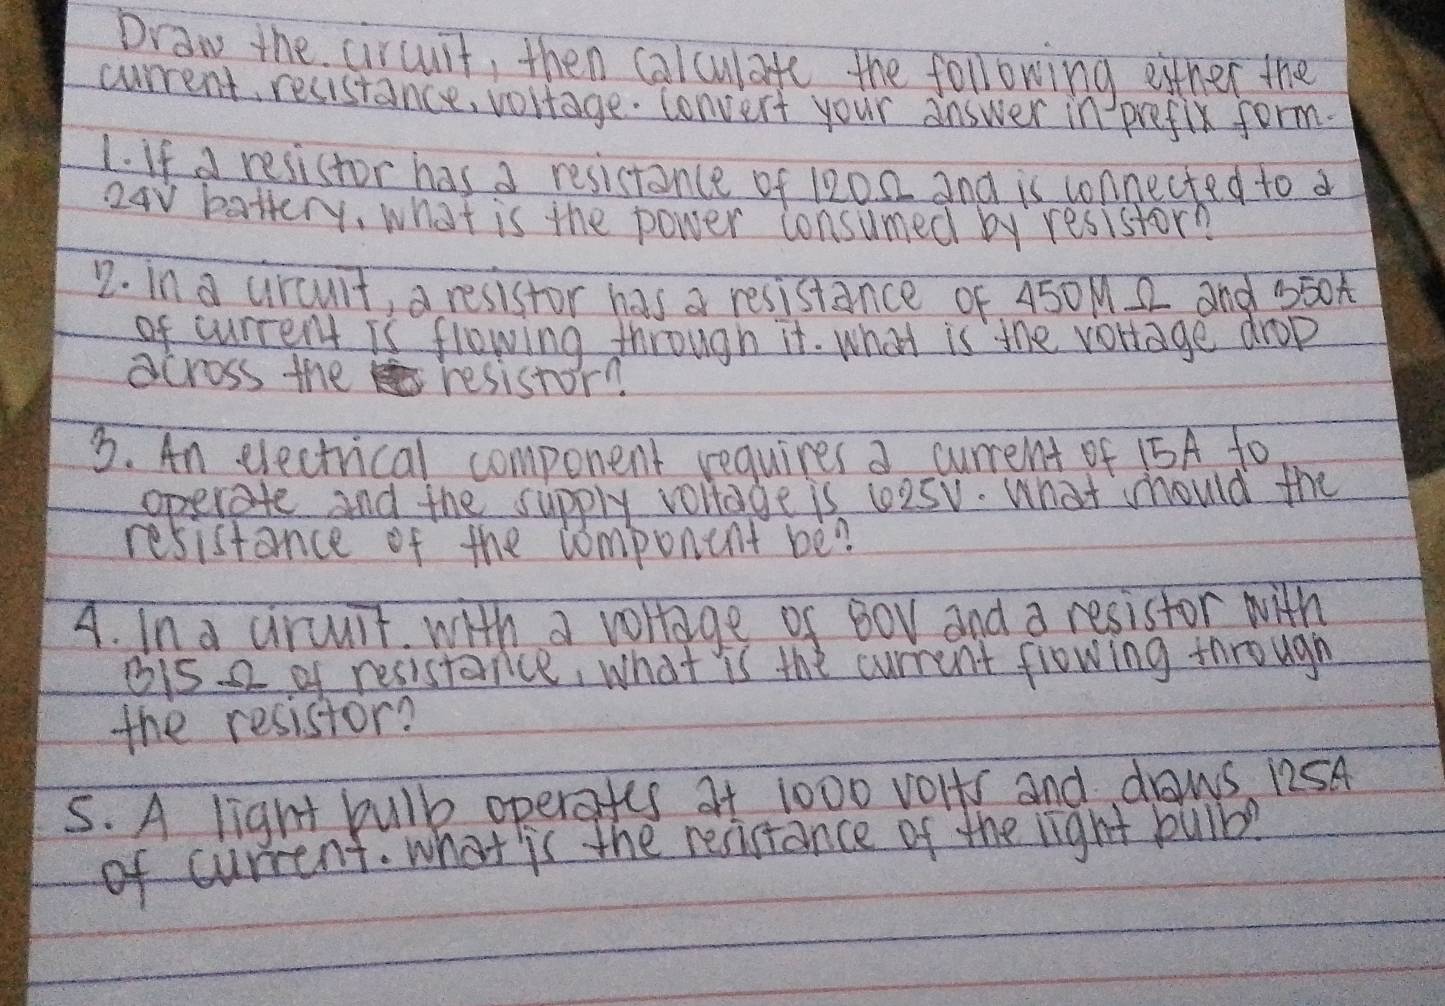 Draw the circuit, then calculate the following either the
current, resistance, voltage. Convert your answer in prefix form.
1. If a resistor has a resistance of 120Ω and is connected to a
24V battery, what is the power consumed by resistor?
2. In a circuit, a resistor has a resistance of 450MΩ and 350A
of current is flowing through it. What is the voltage drop
across the resistor?
3. An electrical component requires a current of 15A to
operate and the supply voltage is 625V. What should the
resistance of the component be?
4. In a circuit. with a voltage of 80V and a resistor with
315Ω of resistance, what is the current flowing through
the resistor?
5. A light bulb operates at 1000 volts and draws 125A
of current. What is the resistance of the light bulb?